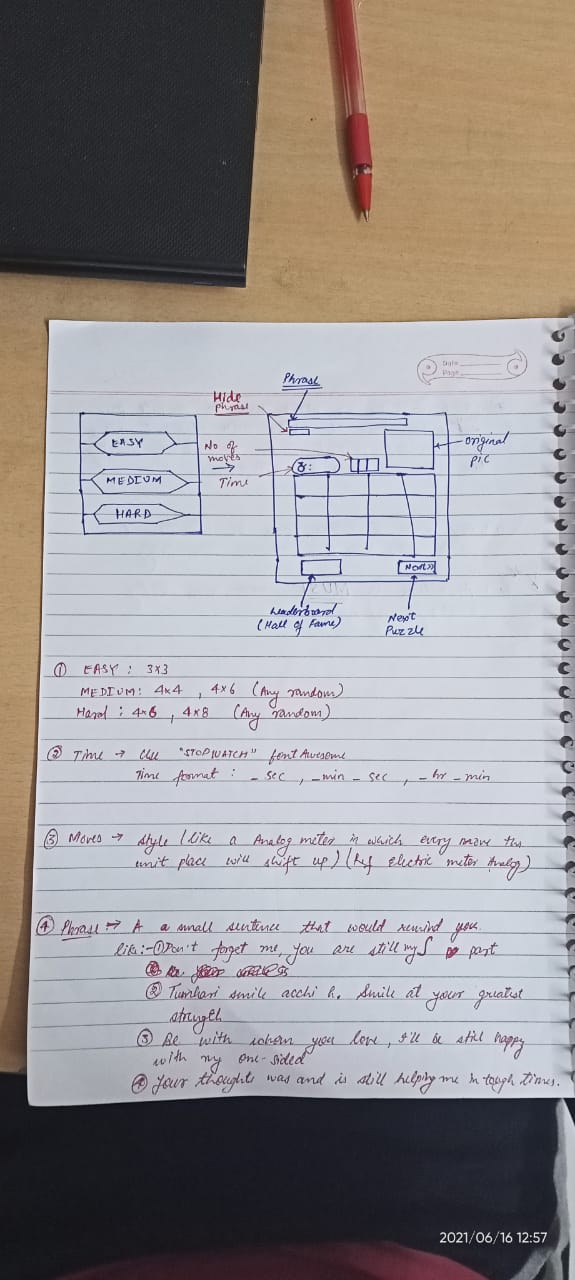 Date
Page
Phrase
Hide
Phrase
EASY
MEDIUM
HARD
No of
moves
Time
original
pic
Next>>
Leaderboard
(Hall of Fame)
Next
Puzzle
① EASY : 3x3
MEDIUM: 4x4 , 4x6 (Any random)
Hard : 4x6 , 4x8 (Any random)
② Time → Use "STOPWATCH" font Awesome
Time format : _ sec , _ min _ sec , _ hr _ min
③ Moves → style (like a Analog meter in which every move the
unit place will shift up) (Ref electric meter Analog)
④ Phrase → A a small sentence that would remind you.
like:- ① Don't forget me, you are still my ♥ part
② Tumhari smile acchi h. Smile at your greatest
strength
③ Be with whom you love, I'll be still happy
with my one-sided
④ Your thoughts was and is still helping me in tough times.
2021/06/16 12:57